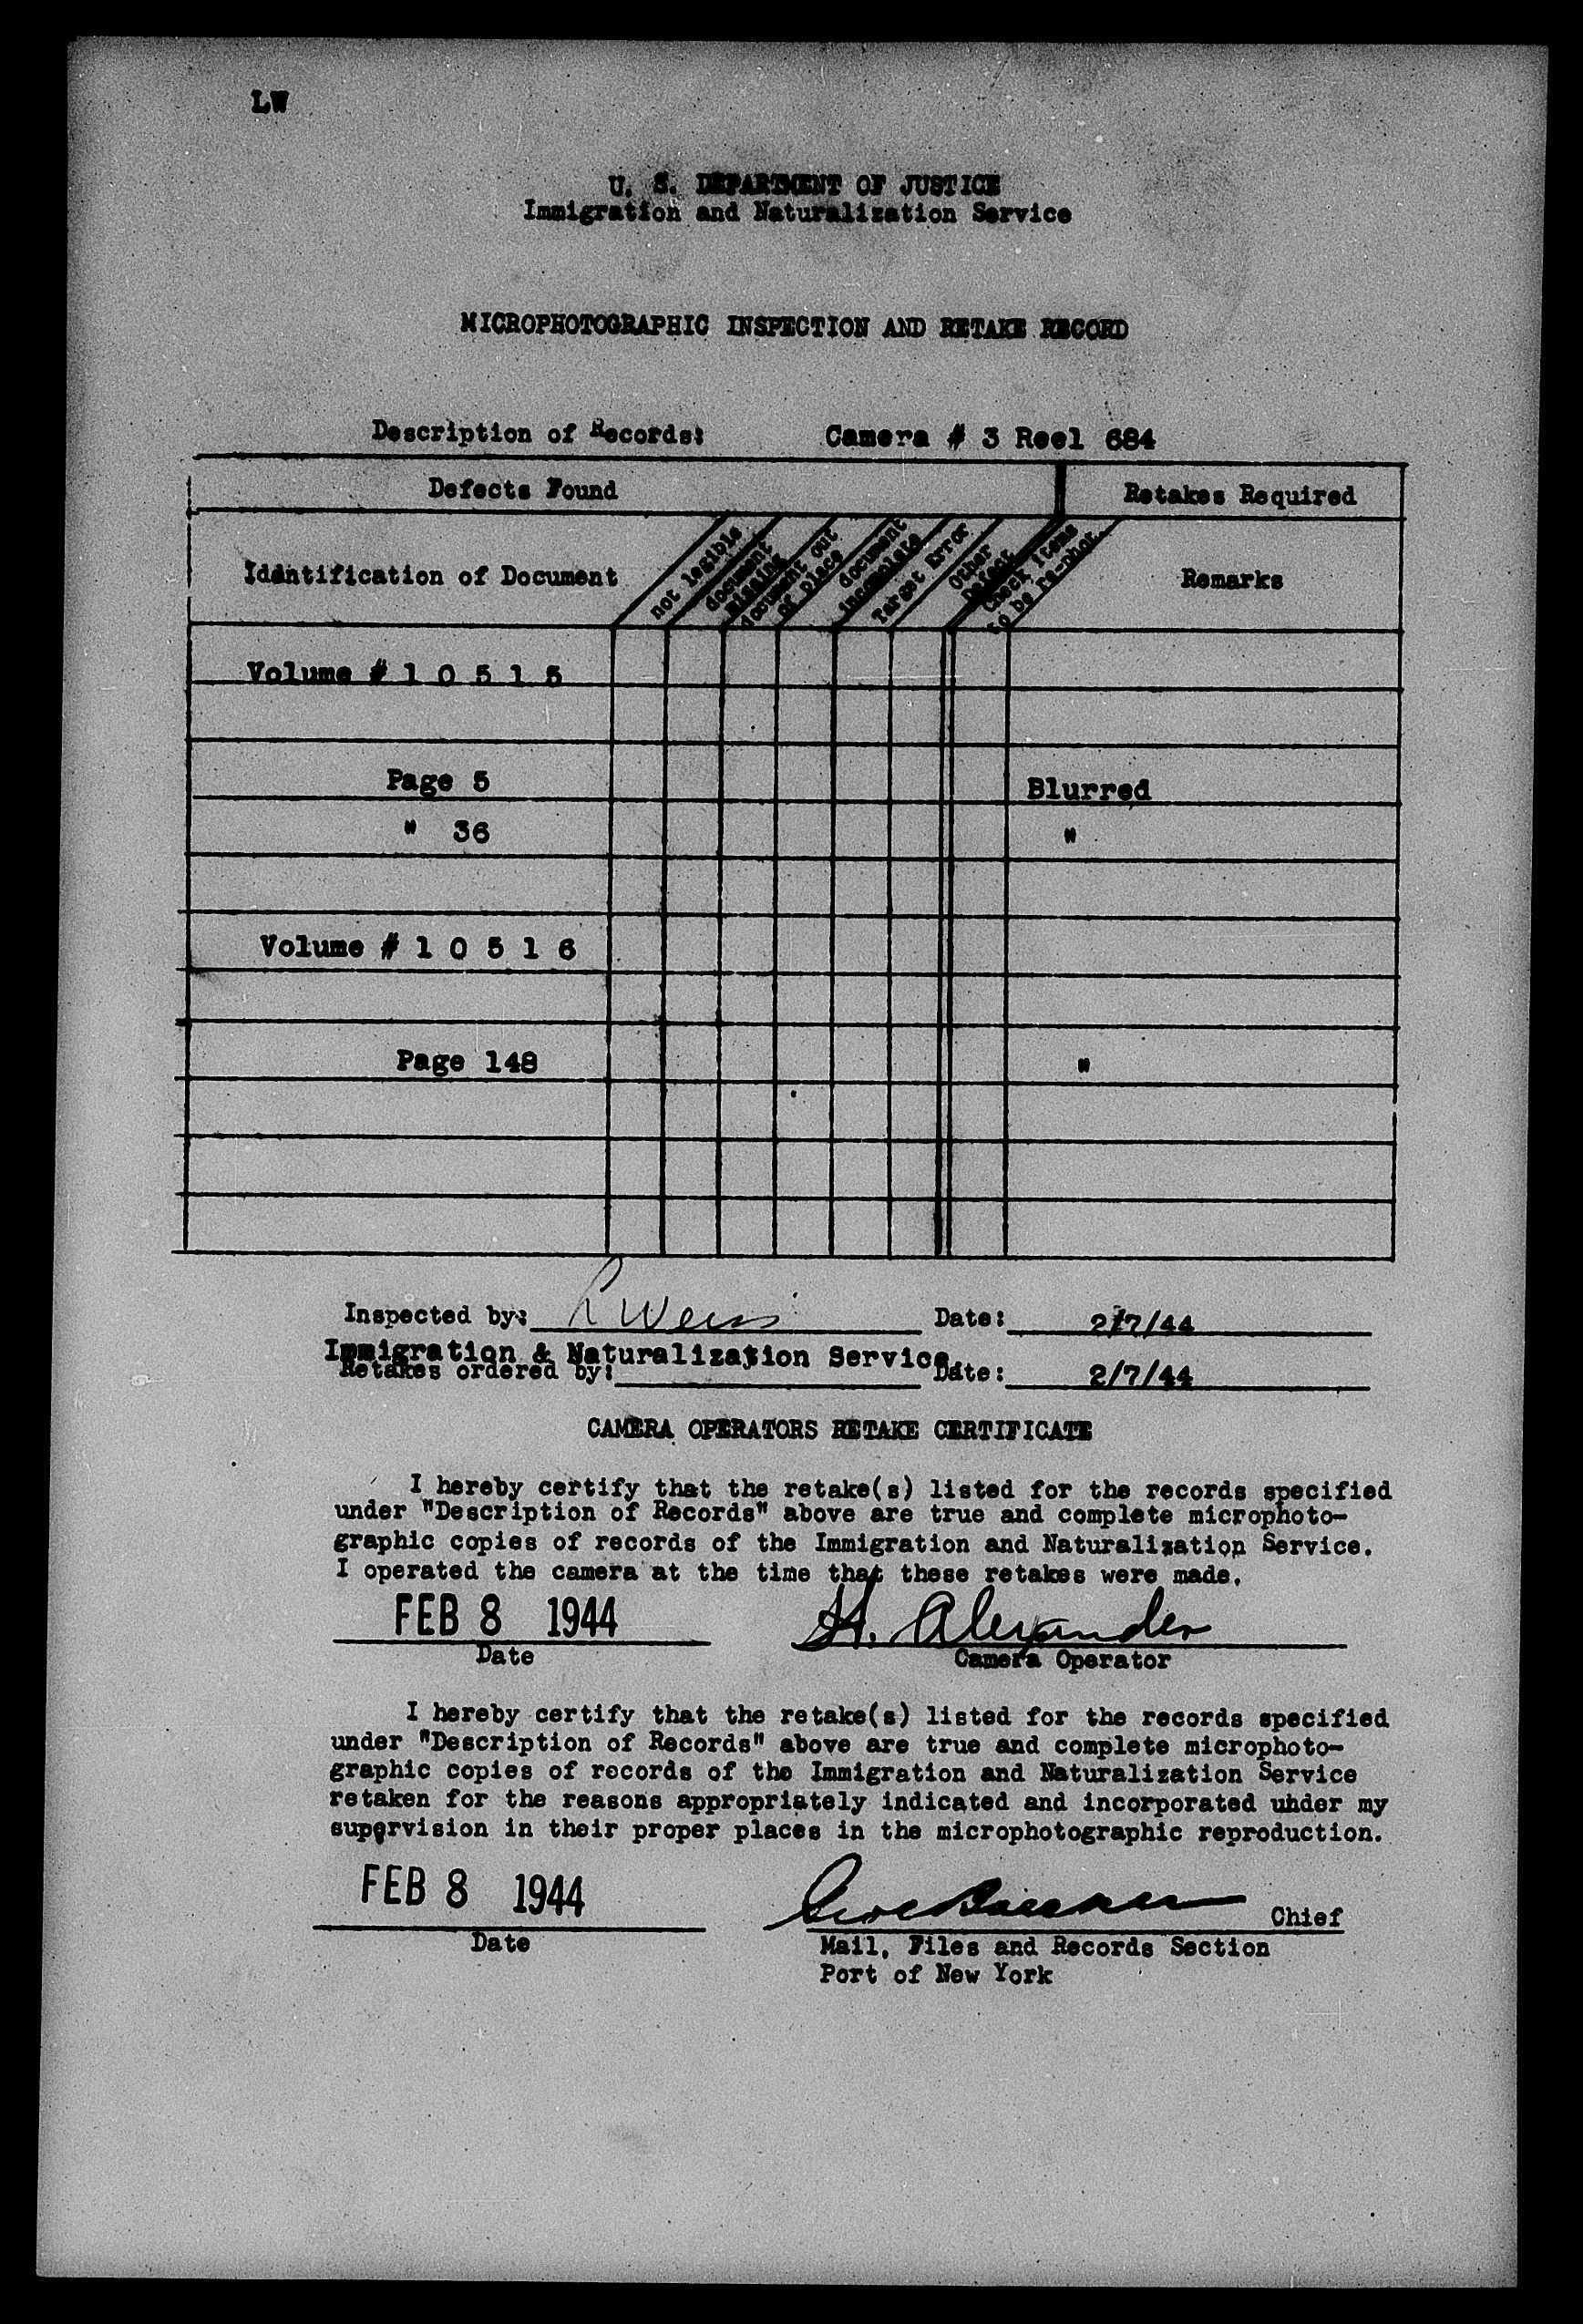 LW
U. S. DEPARTMENT OF JUSTICE
Immigration and Naturalization Service
MICROPHOTOGRAPHIC INSPECTION AND RETAKE RECORD
Description of Records: Camera # 3 Reel 684
Defects Found Retakes Required
Idantification of Document
not legible
document
missing
document out
of place
document
incomplete
Target Error
Other
Defect
Check Items
to be re-phot.
Remarks
Volume # 1 0 5 1 5
Page 5 Blurred
" 36 "
Volume # 1 0 5 1 6
Page 148 "
Inspected by: L Weiss Date: 2/7/44
Immigration & Naturalization Service.
Retakes ordered by: Date: 2/7/44
CAMERA OPERATORS RETAKE CERTIFICATE
I hereby certify that the retake(s) listed for the records specified
under "Description of Records" above are true and complete microphoto-
graphic copies of records of the Immigration and Naturalization Service.
I operated the camera at the time that these retakes were made.
FEB 8 1944 H. Alexander
Date Camera Operator
I hereby certify that the retake(s) listed for the records specified
under "Description of Records" above are true and complete microphoto-
graphic copies of records of the Immigration and Naturalization Service
retaken for the reasons appropriately indicated and incorporated uhder my
supervision in their proper places in the microphotographic reproduction.
FEB 8 1944 Chief
Date Mail, Files and Records Section
Port of New York